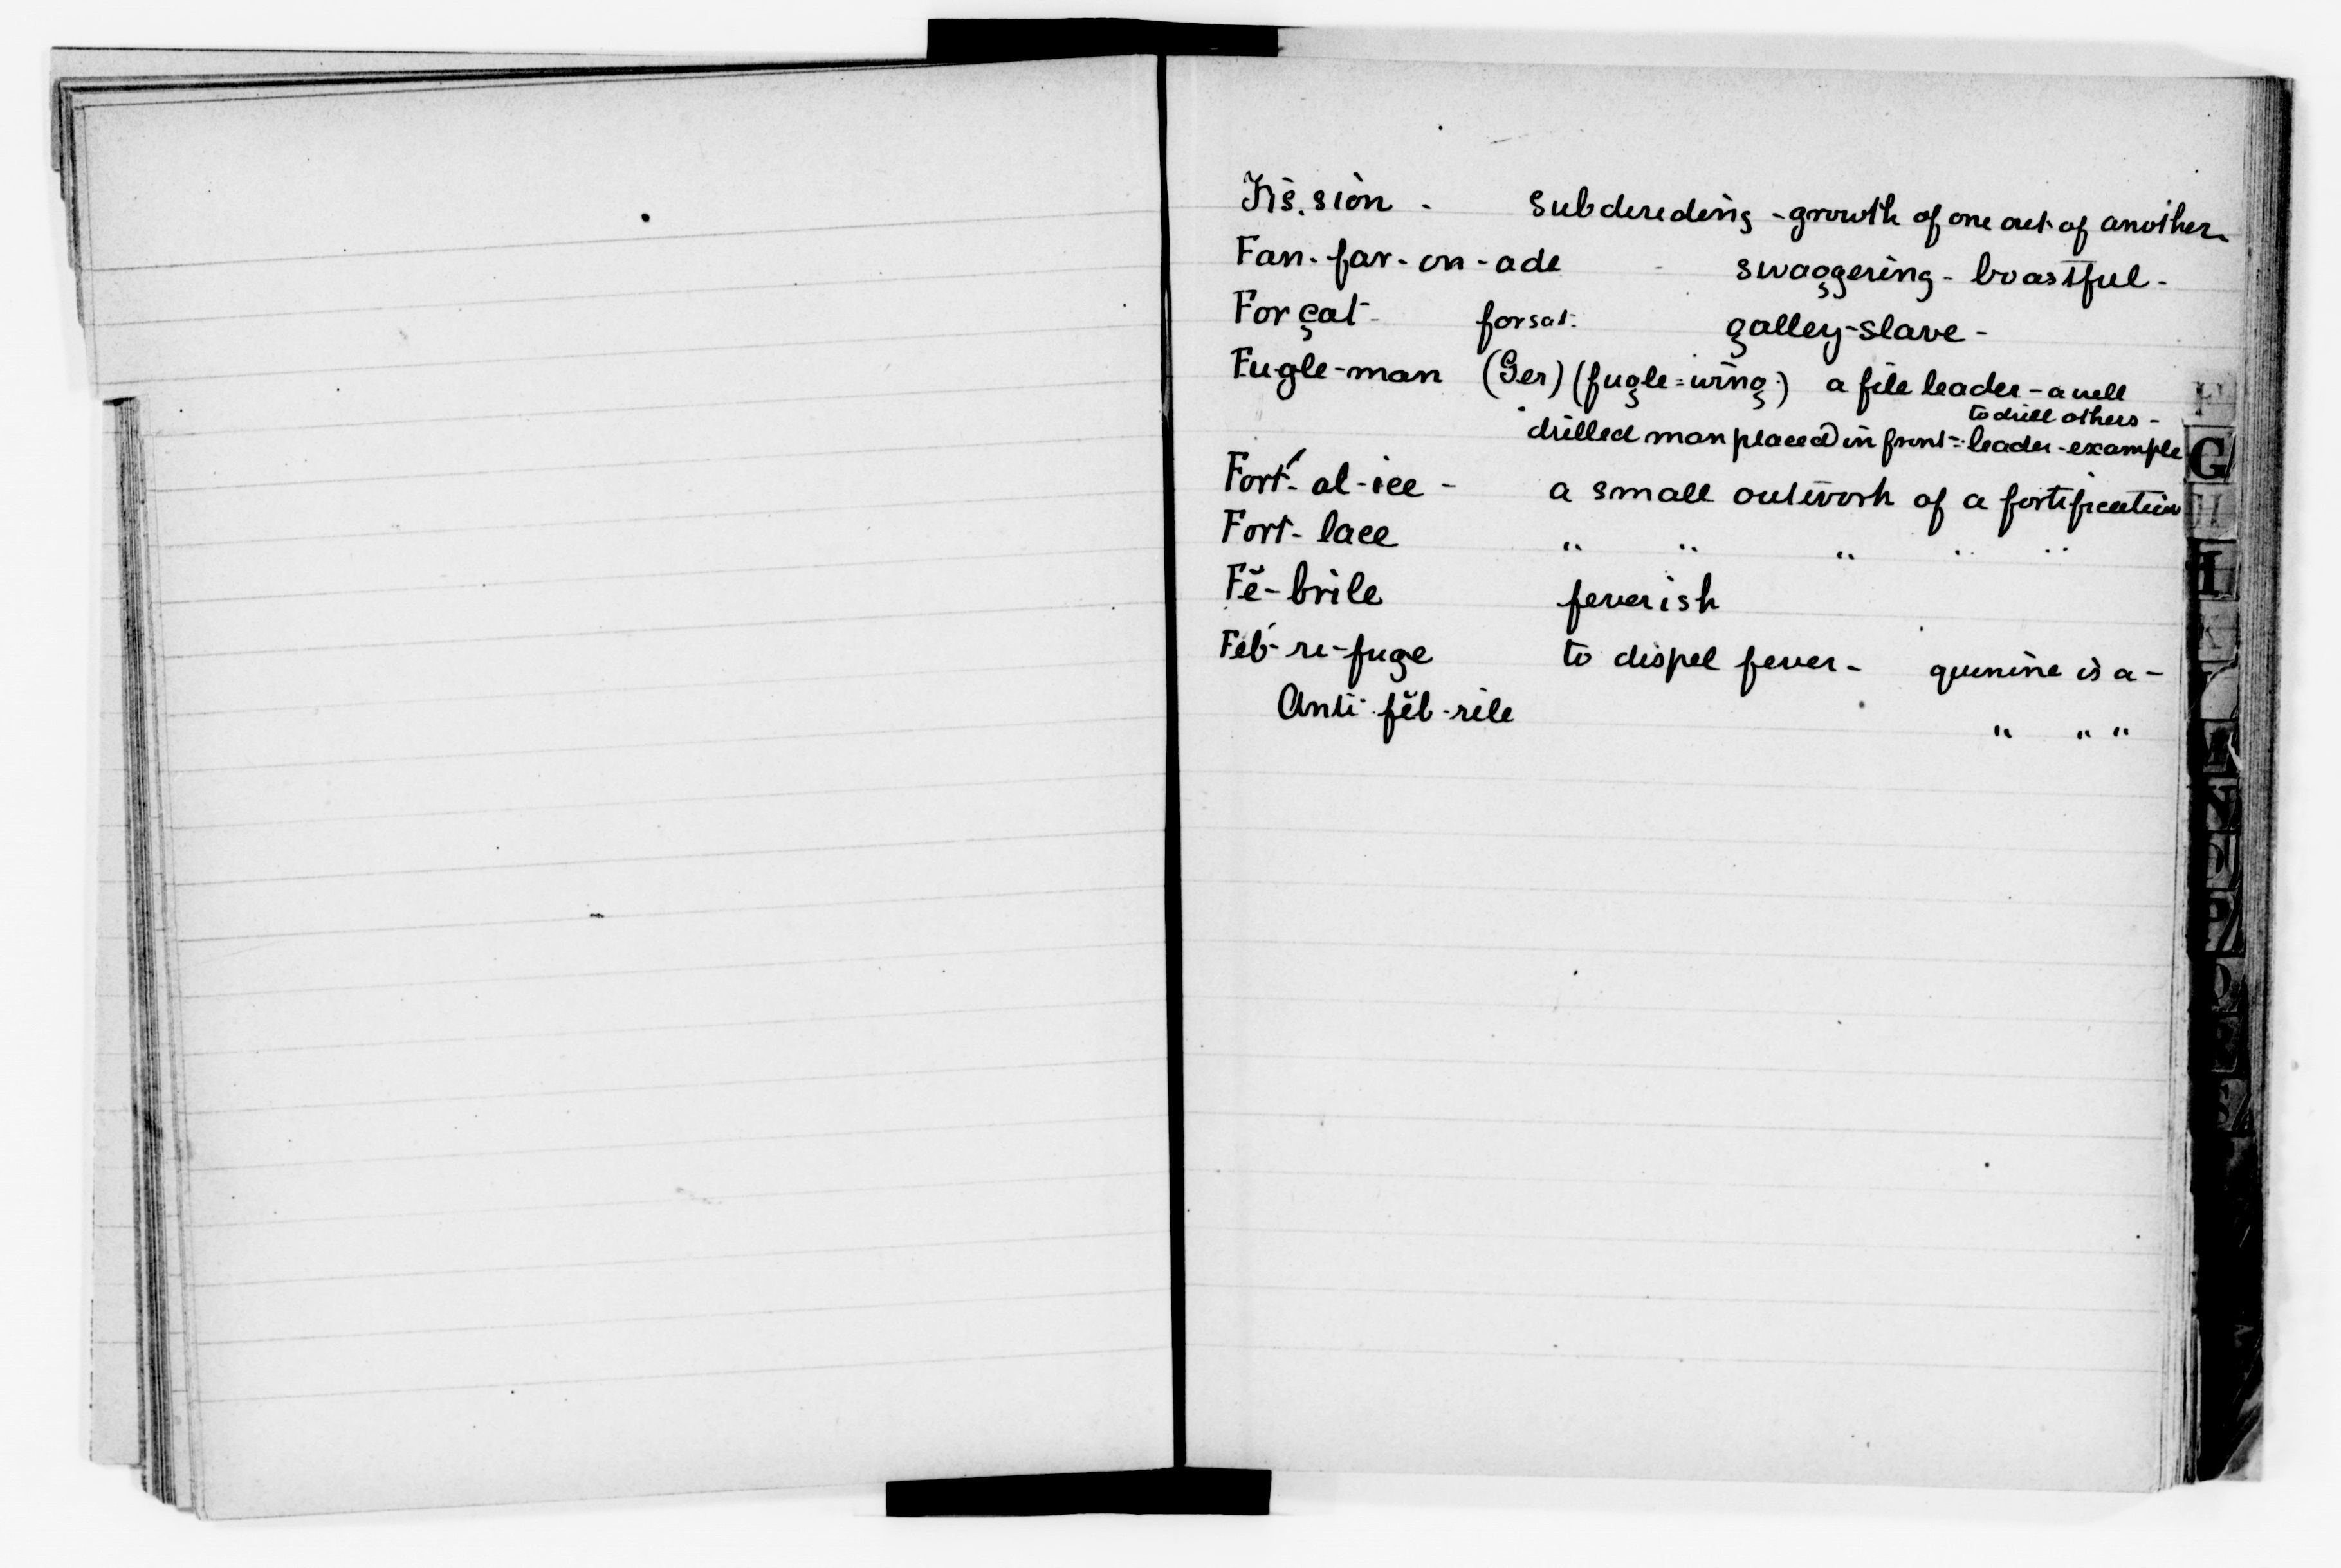 Fis.sion - subdividing - growth of one out of another
Fan-far-on-ade - swaggering - boastful -
Forçat - forsat. galley-slave -
Fugle-man (Ger) (fugle = wing) a file leader - a well
to drill others -
drilled man placed in front = leader - example
Fort´-al-ice - a small outwork of a fortification
Fort-lace " " " " "
Fĕ-brile feverish
Feb´-ri-fuge to dispel fever - quinine is a -
Anti-fĕb-rile " " "
F
G
H
I
K